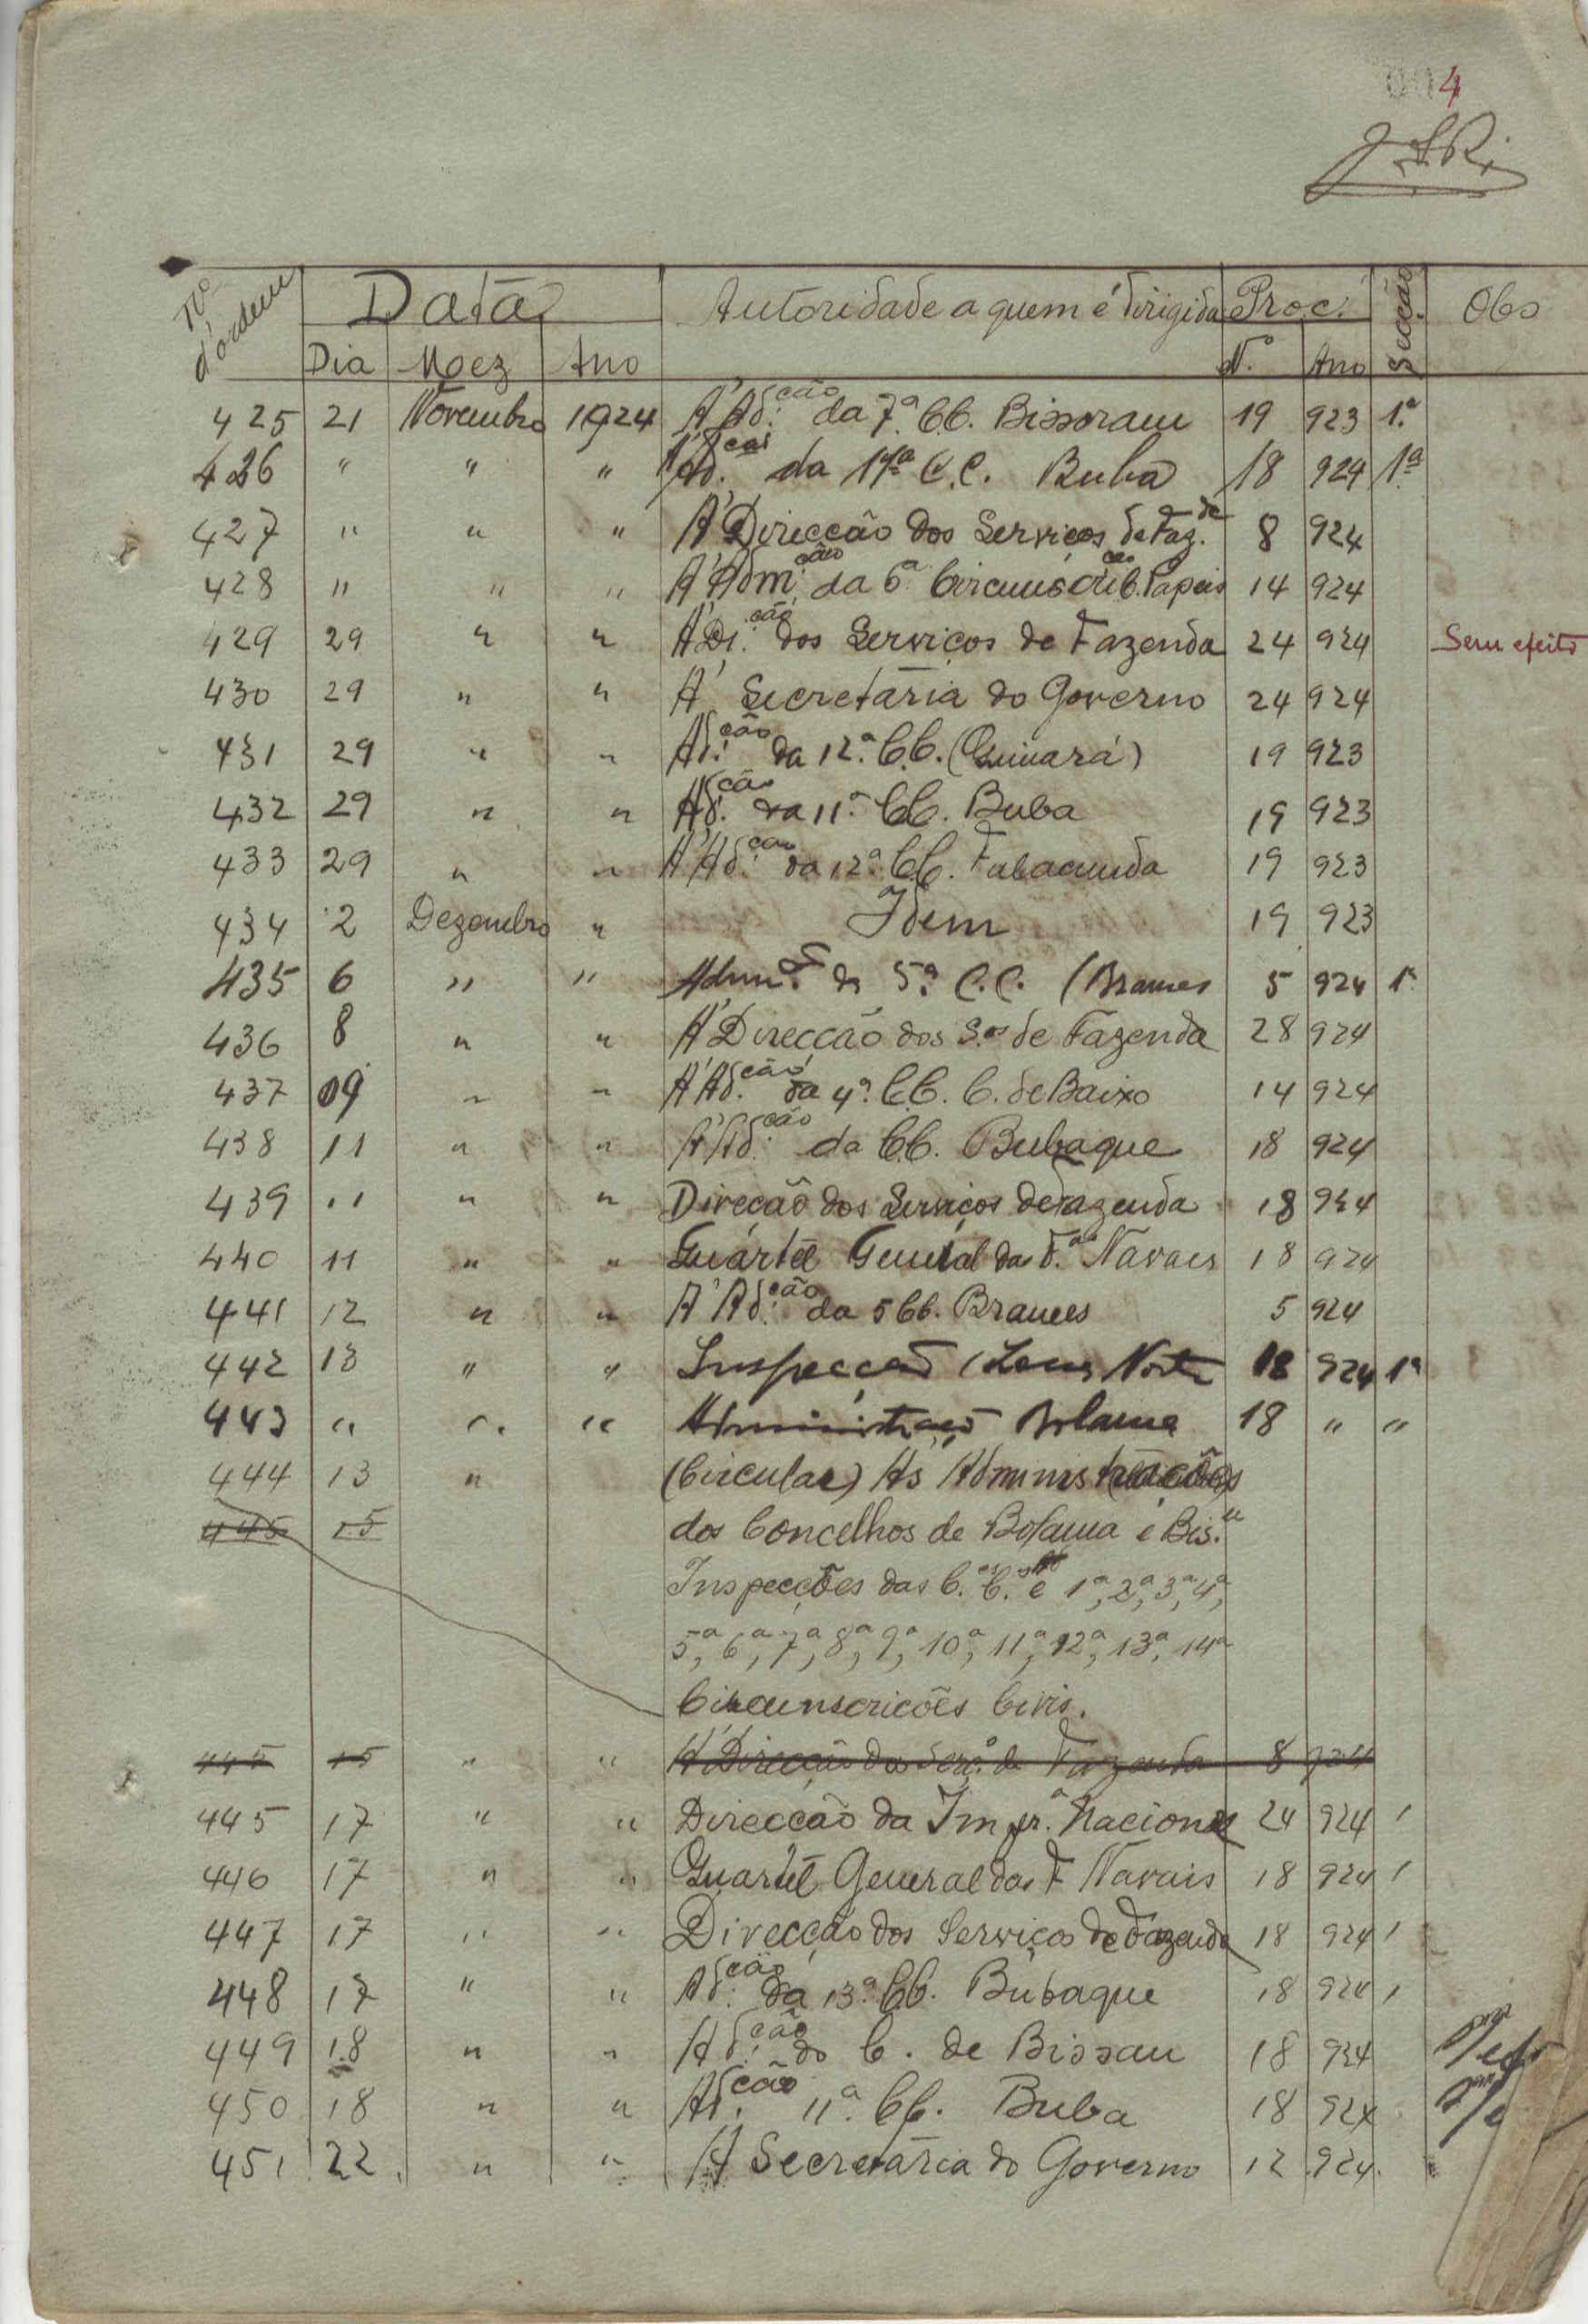 004
Nº d'ordem Data Autoridade a quem é dirigida Proc. Secção Obs
Dia Mez Ano N.º Ano
425 21 Novembro 1924 A' Ad.ção da 7.ª C.C. Bissoram 19 923 1.ª
426 " " " Ad.ção da 11.ª C.C. Buba 18 924 1ª
427 " " " A' Direcção dos Serviços de Faz.de 8 924
428 " " " A' Adm.ção da 6.ª Circunscrição Papeis 14 924
429 29 " " A' Di.ção dos Serviços de Fazenda 24 924 Sem efeito
430 29 " " A' Secretária do Governo 24 924
431 29 " " Ad.ção da 12.ª C.C. (Quinará) 19 923
432 29 " " Ad.ção da 11.ª C.C. Buba 19 923
433 29 " " A' Ad.ção da 12.ª C.C. Fulacunda 19 923
434 2 Dezembro " Idem 19 923
435 6 " " Adm.ão da 5.ª C.C. (Brames 5 924 1.ª
436 8 " " A' Direcção dos S.os de Fazenda 28 924
437 09 " " A' Ad.ção da 4.ª C.C. C. de Baixo 14 924
438 11 " " A' Ad.ção da C.C. Bubaque 18 924
439 11 " " Direção dos Serviços de Fazenda 18 924
440 11 " " Quartel General da F.as Navais 18 924
441 12 " " A' Ad.ção da 5 C.C. Brames 5 924
442 13 " " Inspecção (Zona Norte 18 924 1ª
443 " " " Administração Bolama 18 " "
444 13 " (Circular) A's Administrações
445 15 dos Concelhos de Bolama e Bis.au
Inspecções das C.es C.is e 1ª, 2ª, 3ª, 4ª,
5ª, 6ª, 7ª, 8ª, 9ª, 10ª, 11ª, 12ª, 13ª, 14ª
Circunscricões Civis.
445 15 " " A' Direcção dos Serv.os de Fazenda 8 924
445 17 " " Direccão da Impr.ª Nacional 24 924 1
446 17 " " Quartel General das F Navais 18 924 1
447 17 " " Direcção dos Serviços de Fazenda 18 924 1
448 17 " " Ad.ção da 13.ª C.C. Bubaque 18 924 1
449 18 " " Ad.ção do C. de Bissau 18 924
450 18 " " Ad.ção 11.ª C.C. Buba 18 924
451 22 " " A Secretária do Governo 12 924